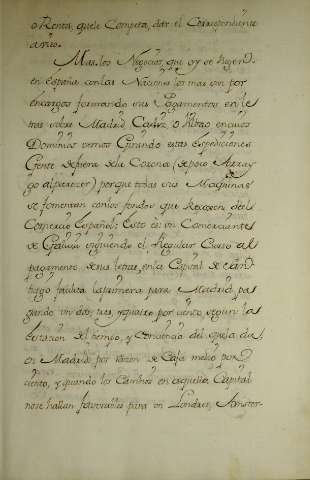 o Renta, quele Competa, dar el Correspondiente
aviso.
Mas. los Negocios, que oy se hazen
en españa con las Naciones los mas son por
encargos formando sus Pagamentos en le
tras sobre Madrid Cadiz, o Bilbao en cuios
Dominios vemos Girando estas expediciones
Gente de fuera de la Corona (de poco Array
go al parecer) porque todas sus Maquinas
se fomentan con los fondos que Recogen del
Comercio Español: Esto es: un Comerciante
de Galicia siguiendo el Regular Curso al
pagamento de sus letras, en la Capital de San
tiago facilita la primera para Madrid pa
gando un dos, tres, y quatro por ciento, segun la
estacion del tiempo, y
en Madrid por razon de Caja medio por
ciento, y quando los Cambios en aquella Capital
no se hallan favorables para con Londres, Amster-